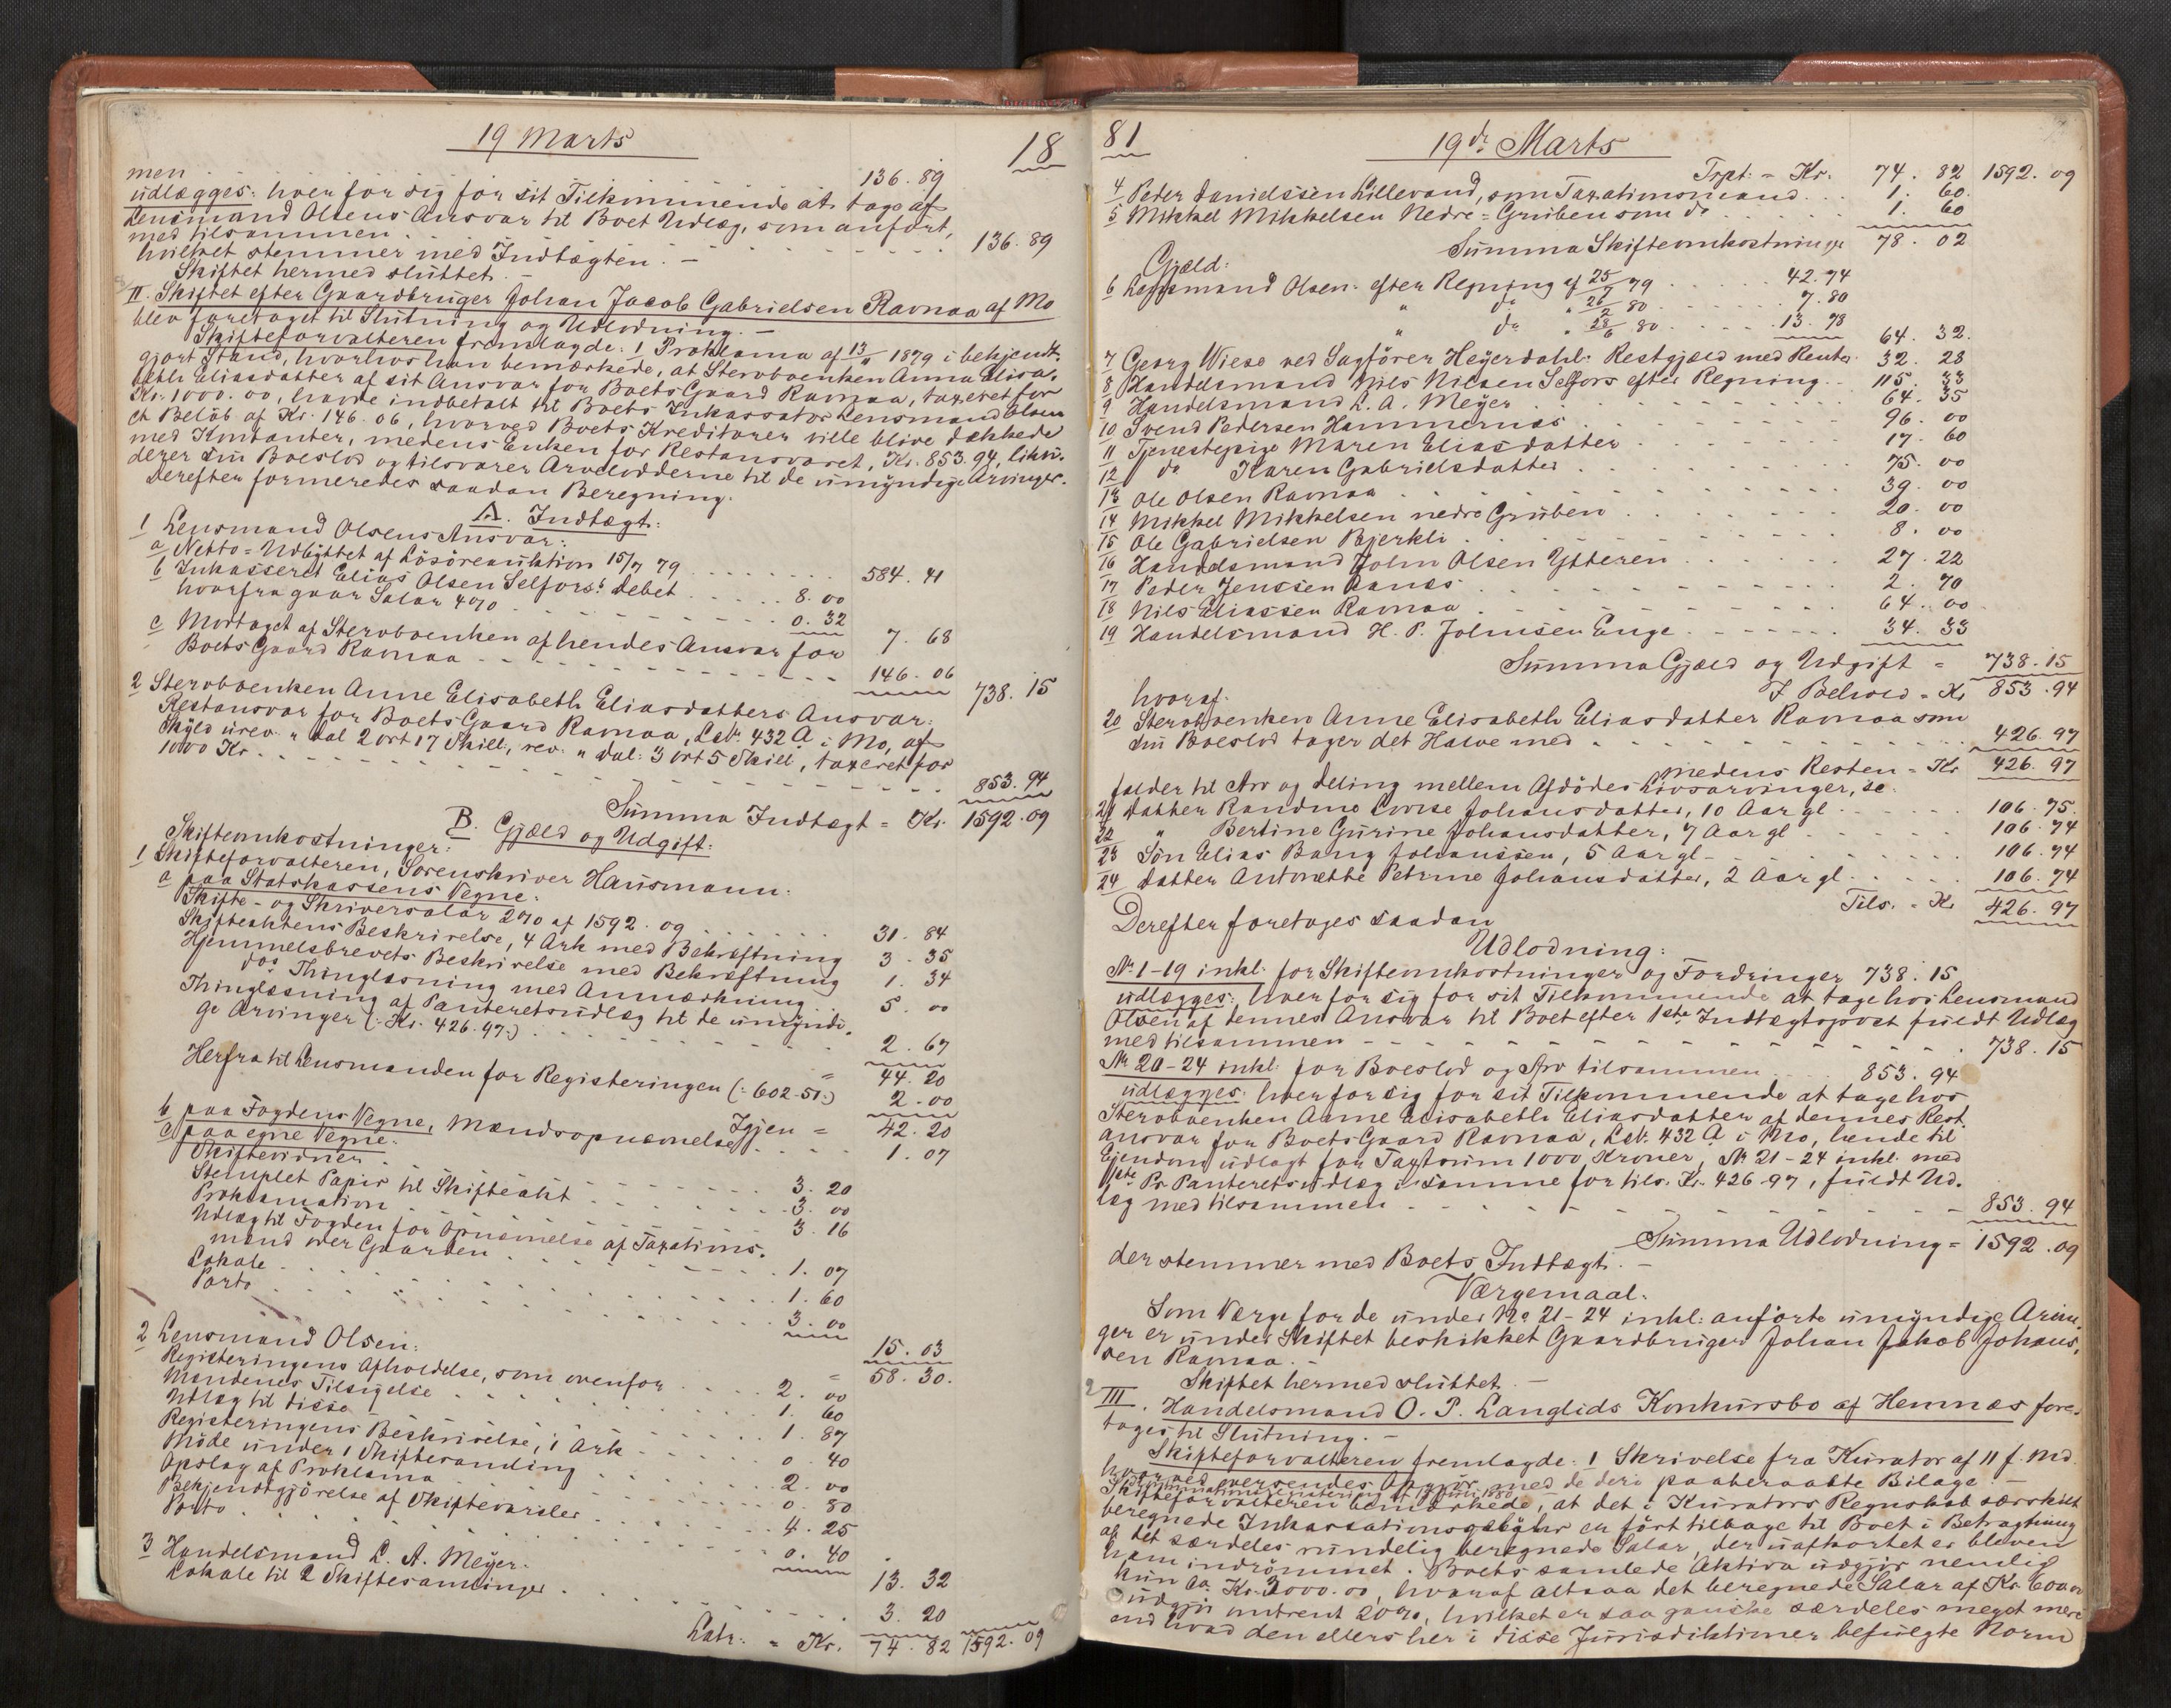 19 Marts
18
men . . . 136. 89
udlægges: hver for sig for sit Tilkommende at tage af
Lensmand Olsens Ansvar til Boet Udlæg, som anført,
med tilsammen . . . 136. 89
hvilket stemmer med Indtægten. —
Skiftet hermed sluttet. —
II. Skiftet efter Gaardbruger Johan Jacob Gabrielsen Ravnaa af Mo
blev foretaget til Slutning og Udlodning. —
Skifteforvalteren fremlagde: 1 Proklama af 1879 i bekjendt-
gjort Stand, hvorhos han bemærkede, at Stervboenken Anna Elisa-
beth Eliasdatter af sit Ansvar for Boets Gaard Ravnaa, taxeret for
Kr. 1000. 00, havde indbetalt til Boets Inkassator Lensmand Olsen
et Beløb af Kr. 146. 06, hvorved Boets Kreditorer ville blive dækkede
med Kontanter, medens Enken for Restansvaret, Kr. 853. 94, likvi-
derer sin Boeslod og tilsvarer Arvelodderne til de umyndige Arvinger.
Derefter formeredes saadan Beregning.
A. Indtægt:
1 Lensmand Olsens Ansvar:
a Netto-Udbyttet af Løsøreauktion 15/7 79 . . . 584. 41
b Inkasseret Elias Olsen Selfors's debet . . . 8. 00
hvorfra gaar Salar 4% . . . 0. 32
7. 68
c Modtaget af Stervboenken af hendes Ansvar for
Boets Gaard Ravnaa . . . 146. 06
738. 15
2 Stervboenken Anne Elisabeth Eliasdatters Ansvar:
Restansvar for Boets Gaard Ravnaa, L.Nr. 432 A i Mo, af
Skyld urev. " Dal. 2 ort 17 Skill., rev. " Dal. 3 ort 5 Skill, taxeret for
1000 Kr. . . . 853. 94
Summa Indtægt = Kr. 1592. 09
B. Gjæld og Udgift:
Skifteomkostninger:
1 Skifteforvalteren, Sorenskriver Hausmann:
a paa Statskassens Vegne:
Skifte- og Skriversalar 2% af 1592. 09 . . . 31. 84
Skifteaktens Beskrivelse, 4 Ark med Bekræftning 3. 35
Hjemmelsbrevets Beskrivelse med Bekræftning 1. 34
dos Thinglæsning med Anmærkning . . 5. 00
Thinglæsning af Panteretsudlæg til de umyndi-
ge Arvinger (: Kr. 426. 97:) . . . 2. 67
= 44. 20
Herfra til Lensmanden for Registeringen (: 602. 51:) 2. 00
Igjen = 42. 20
b paa Fogdens Vegne, Mændsopnævnelse . . . 1. 07
c paa egne Vegne:
Skiftevidner . . . 3. 20
Stemplet Papir til Skifteakt . . . 3. 00
Proklamation . . . 3. 16
Udlæg til Fogden for Opnævnelse af Taxations-
mænd over Gaarden . . . 1. 07
Lokale . . . 1. 60
Porto . . . 3. 00
15. 03
= 58. 30.
2 Lensmand Olsen:
Registeringens Afholdelse, som ovenfor . . . 2. 00
Mændenes Tilsigelse . . . 1. 60
Udlæg til disse . . . 1. 87
Registeringens Beskrivelse, 1 Ark . . . 0. 40
Møde under 1 Skiftesamling . . . 2. 00
Opslag af Proklama . . . 0. 80
Bekjendtgjørelse af Skiftevarsler . . . 4. 25
Porto . . . 0. 40
13. 32
3 Handelsmand L. A. Meyer:
Lokale til 2 Skiftesamlinger . . . 3. 20
Latr. = Kr. 74. 82 1592. 09
81
19de Marts
Trpt. = Kr. 74. 82 1592. 09
4 Peder Danielssen Lillevand, som Taxationsmand . . . 1. 60.
5 Mikkel Mikkelsen Nedre-Gruben som do . . . 1. 60
Summa Skifteomkostninger 78. 02
Gjæld:
6 Lensmand Olsen efter Regning af 25/ 79 . . . 42. 74
" do " 26/2 80 . . . 7. 80
" do " 28/6 80 . . . 13. 78
64. 32.
7 Georg Wiese ved Sagfører Heyerdahl: Restgjæld med Renter 32. 28
8 Handelsmand Nils Nilsen Selfors efter Regning . . 115. 33
9 Handelsmand L. A. Meyer . . . 64. 35
10 Svend Pedersen Hammernæs . . . 96. 00
11 Tjenestepige Maren Eliasdatter . . . 17. 60
12 do Karen Gabrielsdatter . . . 75. 00
13 Ole Olsen Ravnaa . . . 39. 00
14 Mikkel Mikkelsen nedre Gruben . . . 20. 00
15 Ole Gabrielsen Bjerkli . . . 8. 00
16 Handelsmand John Olsen Ytteren . . . 27. 22
17 Peder Jenssen Ranes . . . 2. 70
18 Nils Eliassen Ravnaa . . . 64. 00
19 Handelsmand H. P. Johnsen Enge . . . 34. 33
Summa Gjæld og Udgift = 738. 15
I Behold = Kr. 853. 94
hvoraf:
20 Stervboenken Anne Elisabeth Eliasdatter Ravnaa som
sin Boeslod tager det Halve med . . . 426. 97
medens Resten = Kr 426. 97
falder til Arv og Deling mellem Afdødes Livsarvinger, se:
21 Datter Randine Lovise Johansdatter, 10 Aar gl . . . 106. 75.
22 " Bertine Gurine Johansdatter, 7 Aar gl . . . 106. 74
23 Søn Elias Bang Johanssen, 5 Aar gl . . . 106. 74
24 Datter Antonette Petrine Johansdatter, 2 Aar gl . . . 106. 74
Tils. = Kr 426. 97
Derefter foretages saadan
Udlodning:
No 1-19 inkl. for Skifteomkostninger og Fordringer 738. 15
udlægges: hver for sig for sit Tilkommende at tage hos Lensmand
Olsen af dennes Ansvar til Boet efter 1ste Indtægtspost fuldt Udlæg
med tilsammen . . . 738. 15
No 20-24 inkl. for Boeslod og Arv tilsammen . . . 853. 94
udlægges: hver for sig for sit Tilkommende at tage hos
Stervboenken Anne Elisabeth Eliasdatter af dennes Rest-
ansvar for Boets Gaard Ravnaa, L.Nr. 432 A i Mo, hende til
Ejendom udlagt for Taxtsum 1000 Kroner, No 21-24 inkl. med
1ste Pr. Panteretsudlæg i samme for tils. Kr. 426. 97, fuldt Ud-
læg med tilsammen . . . 853. 94
Summa Udlodning = 1592. 09
der stemmer med Boets Indtægt. —
Værgemaal:
Som Værge for de under No 21-24 inkl: anførte umyndige Arvin-
ger er under Skiftet beskikket Gaardbruger Johan Jakob Johans-
sen Ravnaa. —
Skiftet hermed sluttet. —
III. Handelsmand O. P. Langlids Konkursbo af Hemnæs fore-
tages til Slutning. —
Skifteforvalteren fremlagde: 1 Skrivelse fra Kurator af 11 f. Md.
hvorved oversendes Opgjør med de deri paaberaabte Bilage —
Skifteforvalteren bemærkede, at det i Kurators Regnskab særskilt
beregnede Inkassationsgebyhr er ført tilbage til Boet i Betragtning
af det særdeles rundelig beregnede Salar, der uafkortet er bleven
ham indrømmet. Boets samlede Aktiva udgjør nemlig
kun ca. Kr. 3000. 00, hvoraf altsaa det beregnede Salar af Kr. 600.00
udgjør omtrent 20%, hvilket er saa ganske særdeles meget mere
end hvad den ellers her i disse Jurisdiktioner befulgte Norm